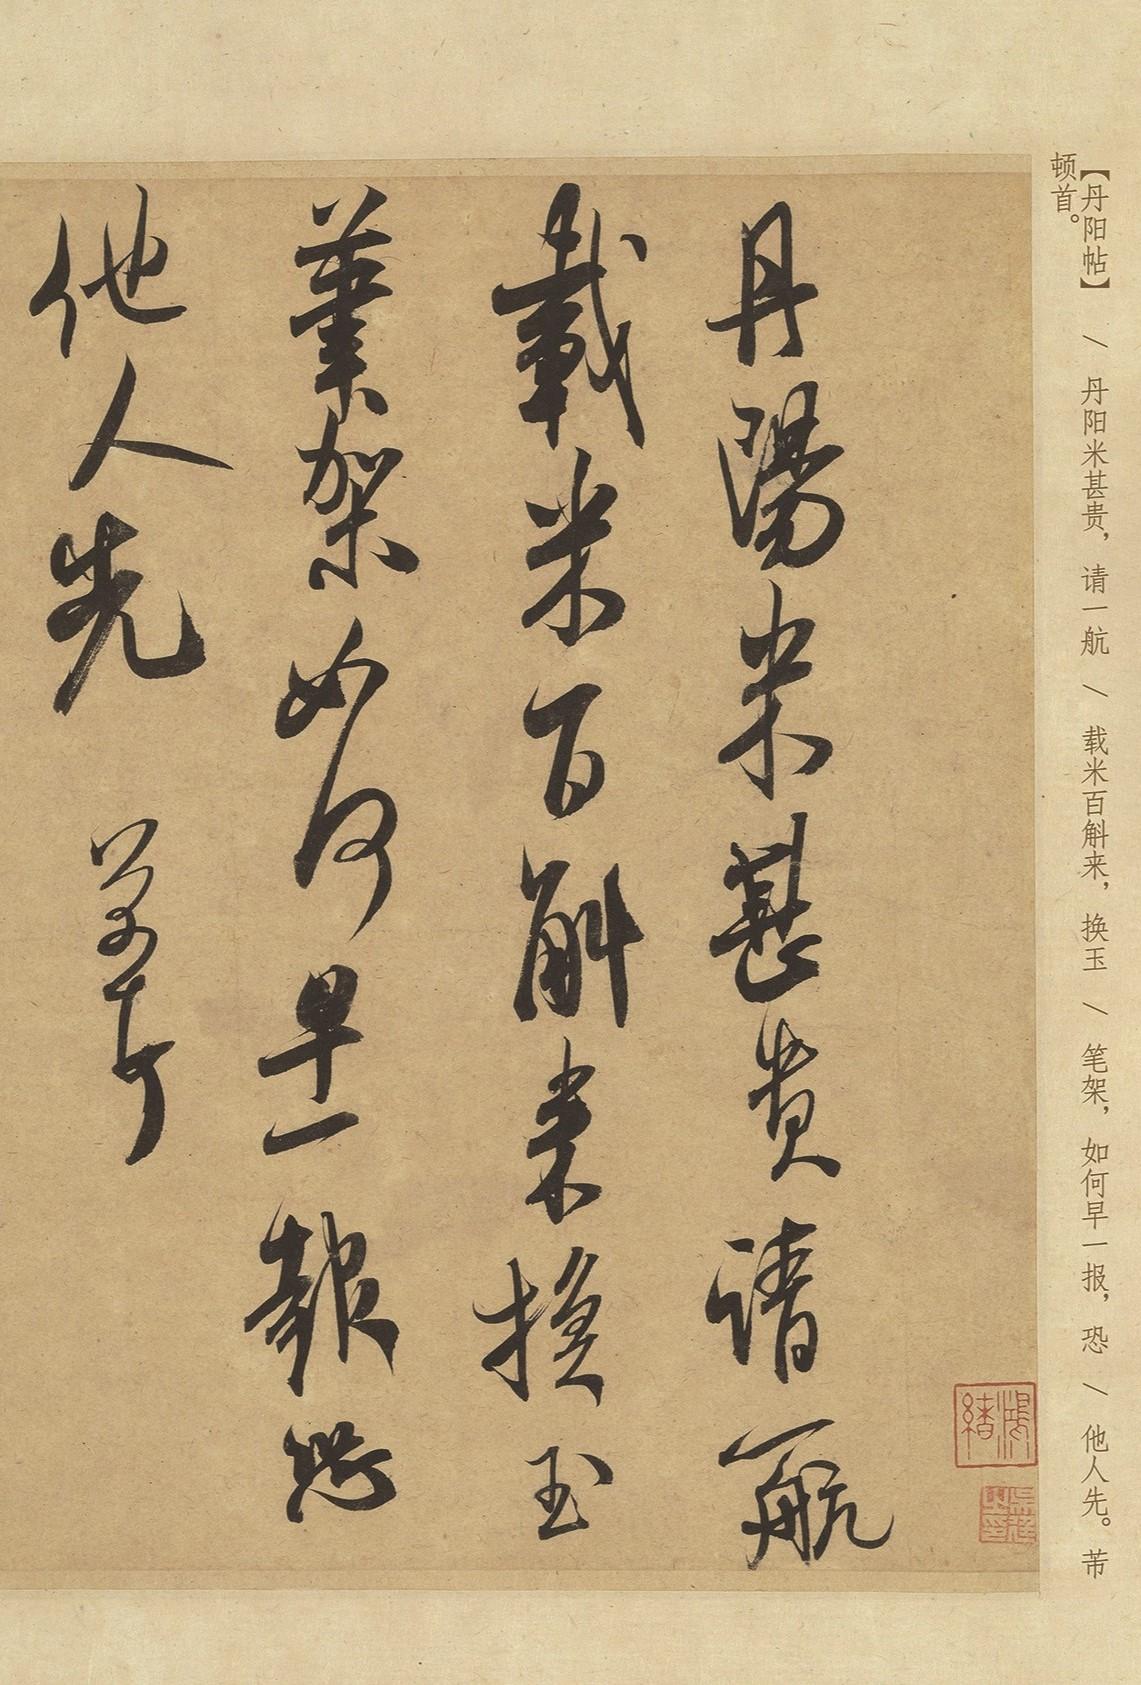 【丹阳帖】 / 丹阳米甚贵，请一航 / 载米百斛来，换玉 / 笔架，如何早一报，恐 / 他人先。芾
顿首。
丹陽米甚貴請一航
載米百斛来換玉
筆架如何早一報恐
他人先 芾頓首